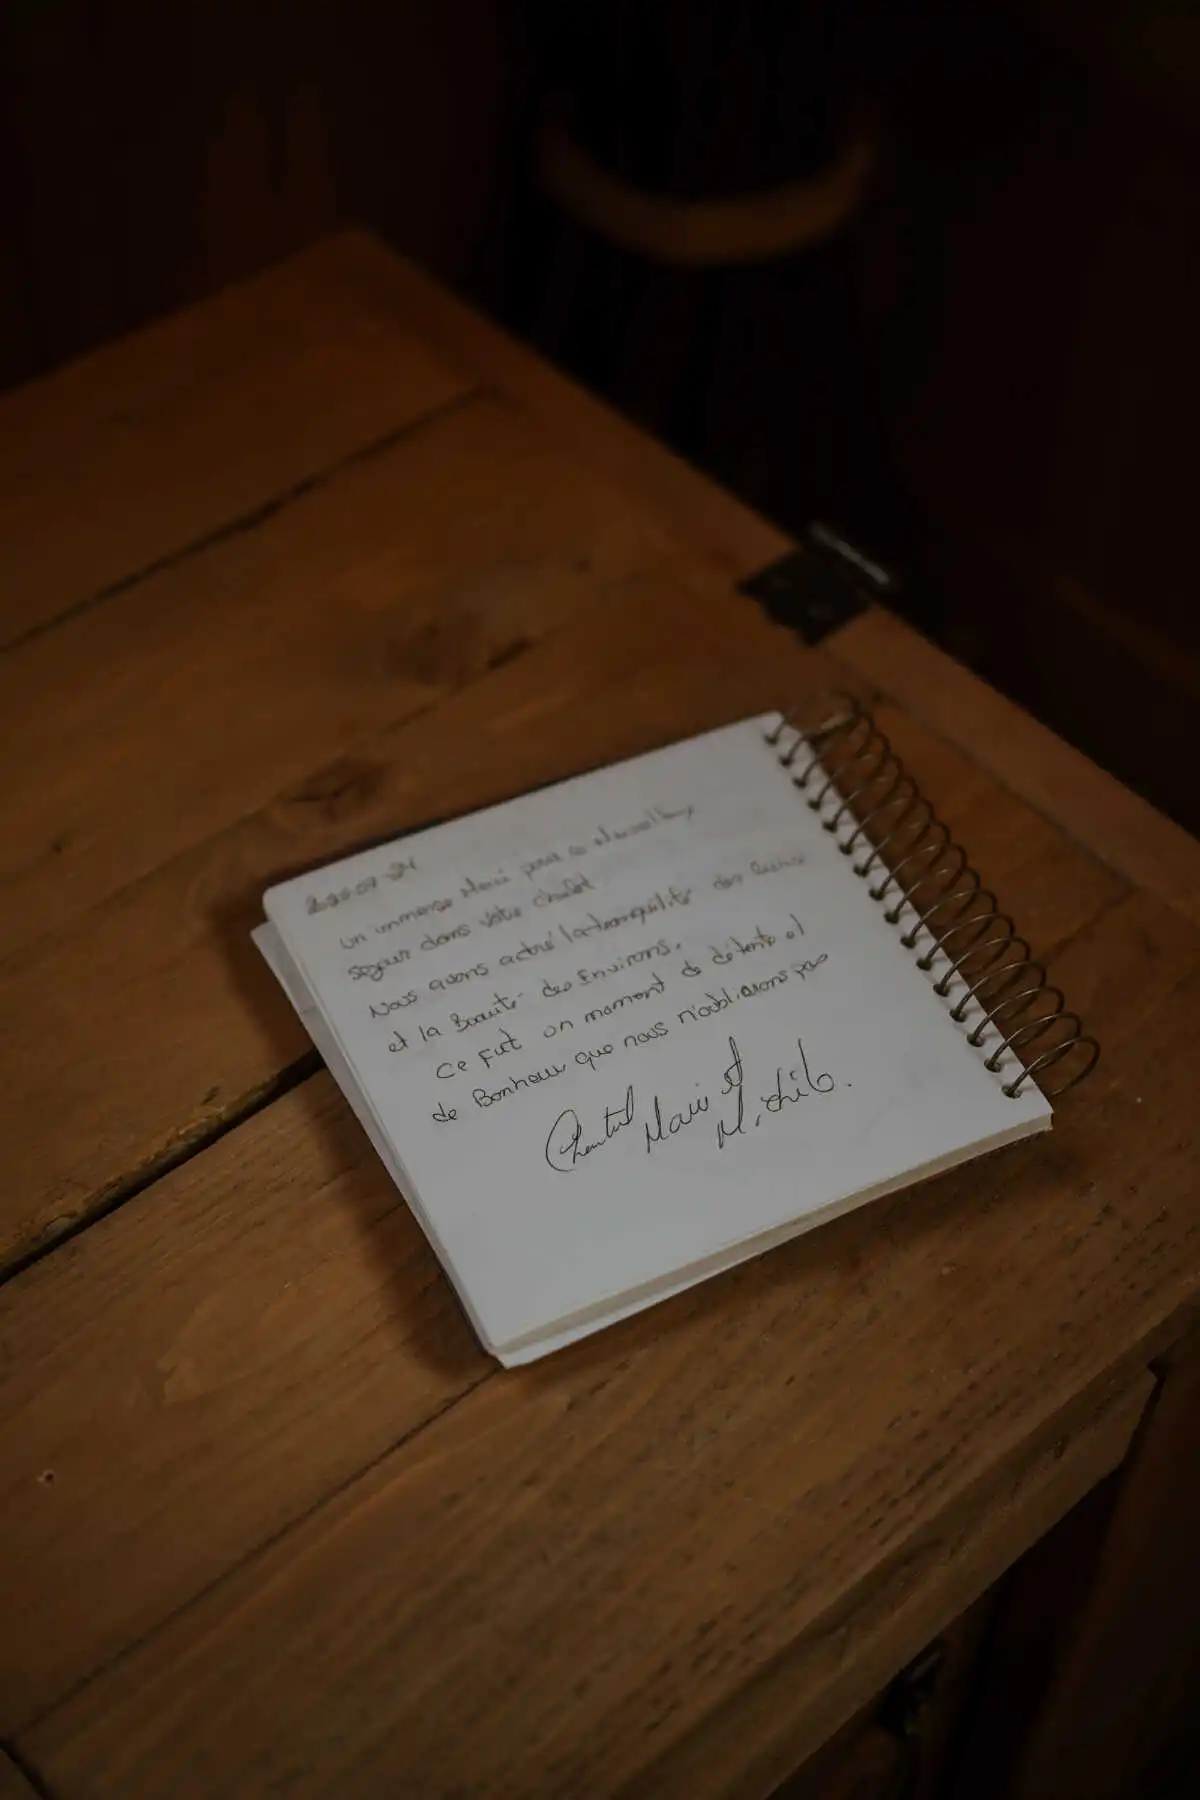 un immense Merci pour ce Merveilleux
séjour dans votre chalet
Nous avons adoré la tranquilité des lieux
et la Beauté des Environs.
Ce Fut un moment de détente et
de Bonheur que nous n'oublierons pas
Chantal Marie et